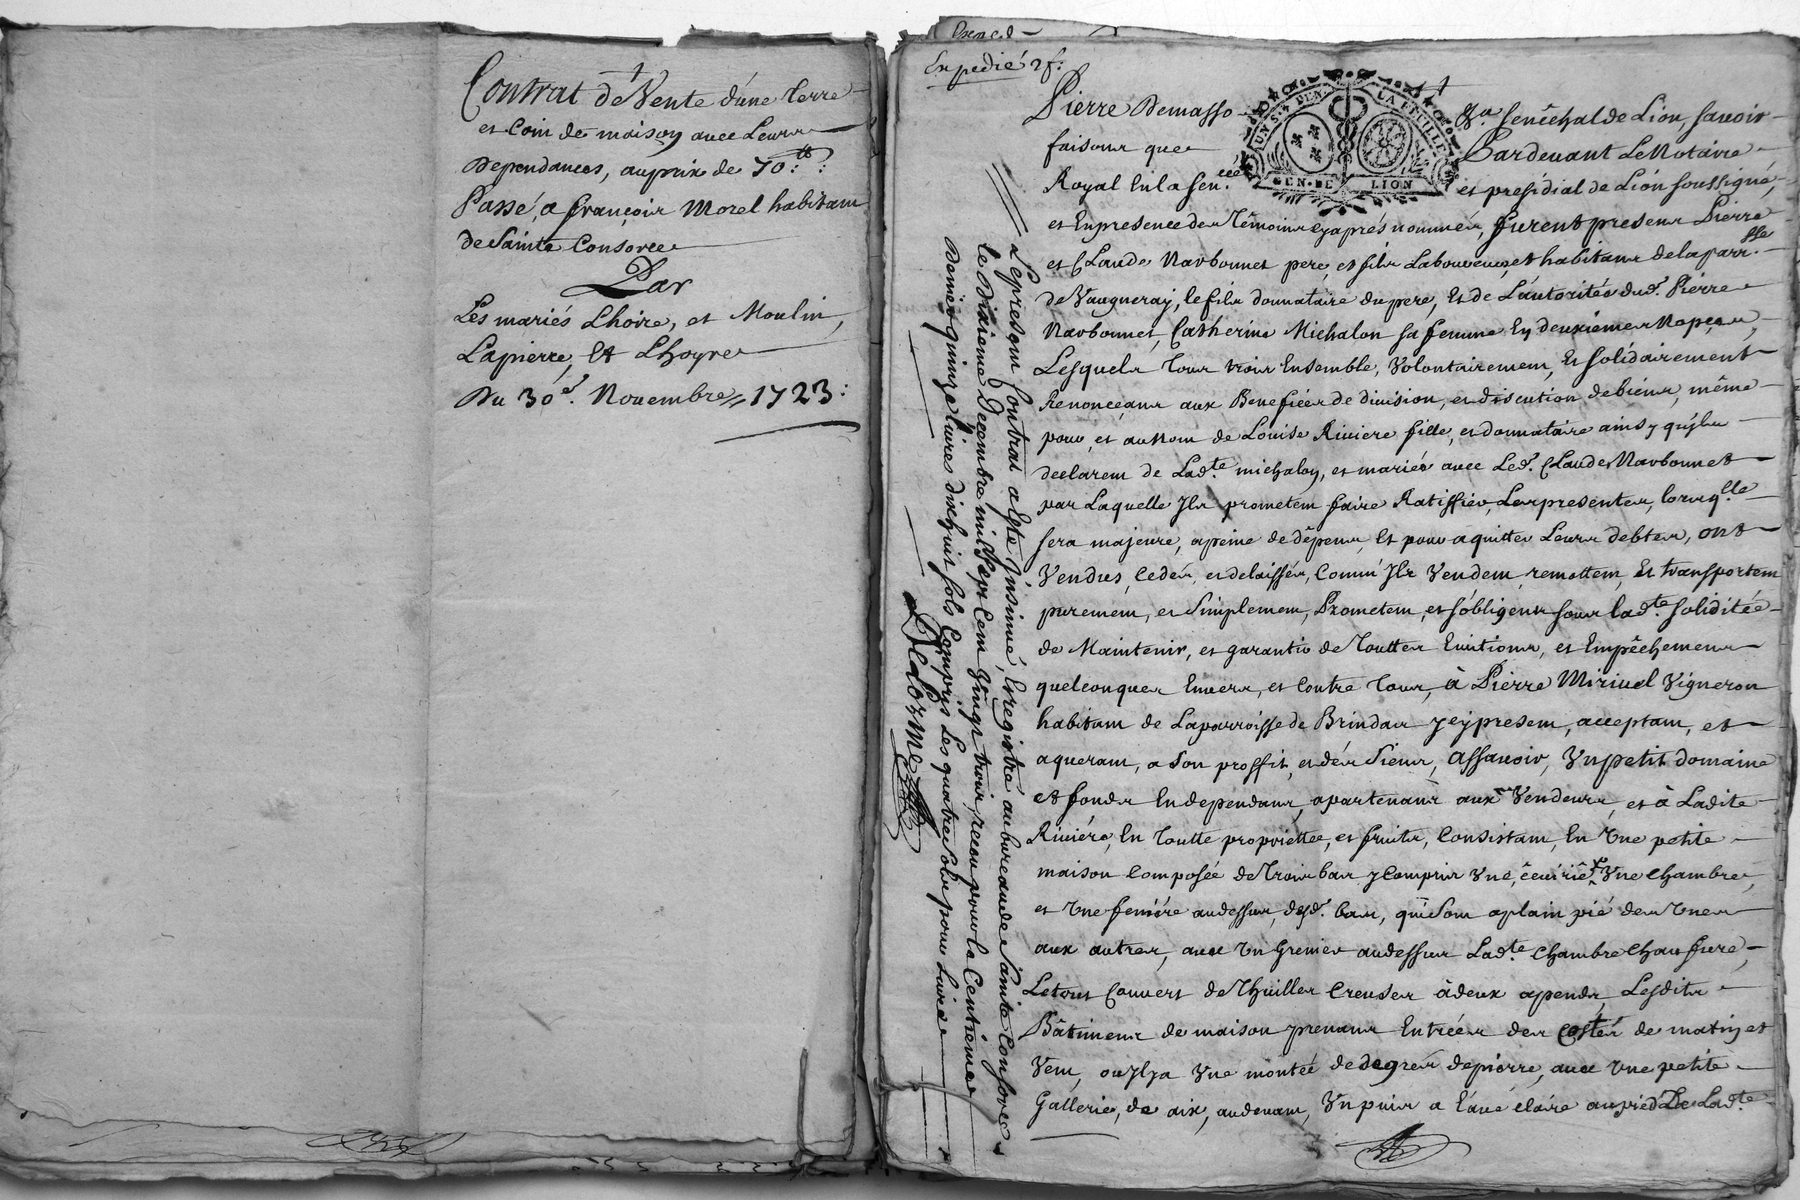 Contrat de Vente d'une Terre
et Coin de maison avec Leurs
Dependances, au prix de 70:tt:
Passé, a françois Morel habitant
de Sainte Consorce
Par
Les mariés Lhoire, et Moulin,
Lapierre, Et Lhoyre
Du 30e. Novembre, 1723:
Expedié 2 f:
Pierre Demasso
faisons que
Royal En la sen.ceé
UN S. 4 DEN. LA FEUILLE
GEN. DE LION
Sen senêchal de Lion, savoir
Pardevant Le Notaire
et presidial de Lion soussigné,
et En presence des Témoins cy aprés nommés, furent presens Pierre
et Claude Narbonnet pere, et fils Laboureurs, et habitans de la parr.sse
de Vaugneray, le fils donnataire du pere, Et de L'autoritée dud.t Pierre
Narbonnet, Catherine Michalon sa femme En deuxiémes Nopces,
Lesquels Tous trois Ensemble, Volontairement, Et solidairement
Renonceans aux Benefices de division, et discution de biens, même
pour, et au Nom de Louise Riviere fille, et donnataire ainsy qu'jls
declarent de Lad.te michalon, et mariée avec Led.t Claude Narbonnet
par Laquelle Jls prometent faire Ratiffier, Les presentes, lorsq.lle
sera majeure, apeine de dépens, Et pour aquitter Leurs debtes, ont
Vendus, Cedés, et delaissés, Comm' Jls Vendent, remettent, Et transportent
purement, et Simplement, Prometent, et s'obligent sous lad.te soliditée
de Maintenir, et garantir de Touttes Evictions, et Empêchemens
quelconques Envers, et Contre Tous, à Pierre Miriuel Vigneron
habitant de Laparroisse de Brindas Jcy present, acceptant, et
aquerant, a Son proffit, et dés Siens, Assavoir, Vn petit domaine
et fonds En dependans, apartenans aux Vendeurs, et à Ladite
Riviére, En Toutte proprietée, et fruits, Consistant, En Vne petite
maison Composée de Trois bas y Compris Vne écuirie, Vne Chambre,
et Vne feniére audessus, desd.t bas, qui Sont aplain pié des Vnes
aux autres, avec Vn Grenier audessus Lad.te Chambre Chaufure,
Letout Couvert de Thuilles Creuses à deux apends, Lesdits
Bâtimens de maison prenans Entrées des Costés de matin, et
Vent, ou Jl ja Vne montée de degrés de pierre, avec Vne petite
Gallerie, de aix, audevant, Vn puits a l'aue claire au pied De Lad.te
Le present Contrat a Eté Jnsinué, Enregistré au bureau de Sainte Consorce
le dixieme Decembre mil Sept Cent Vingt trois, receu pour le Centieme
Denier quinze livres dixhuit sols Compris Les quatre Sols pour Livre
Delorme